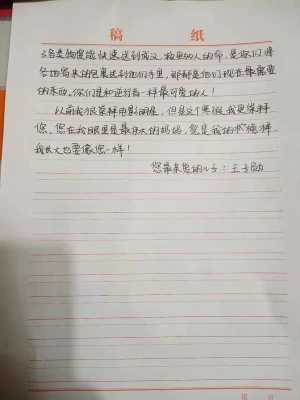 稿 纸
了各类物资能快速送到武汉，救更多人的命，是你们将
各地寄来的包裹送到他们手里，那都是他们现在最需要
的东西，你们是和逆行者一样最可爱的人！
以前我很崇拜电影明星，但是这个寒假，我更崇拜
您，您在我眼里是最伟大的妈妈，您是我的榜样，
我长大也要像您一样！
您最亲爱的儿子：王子勋